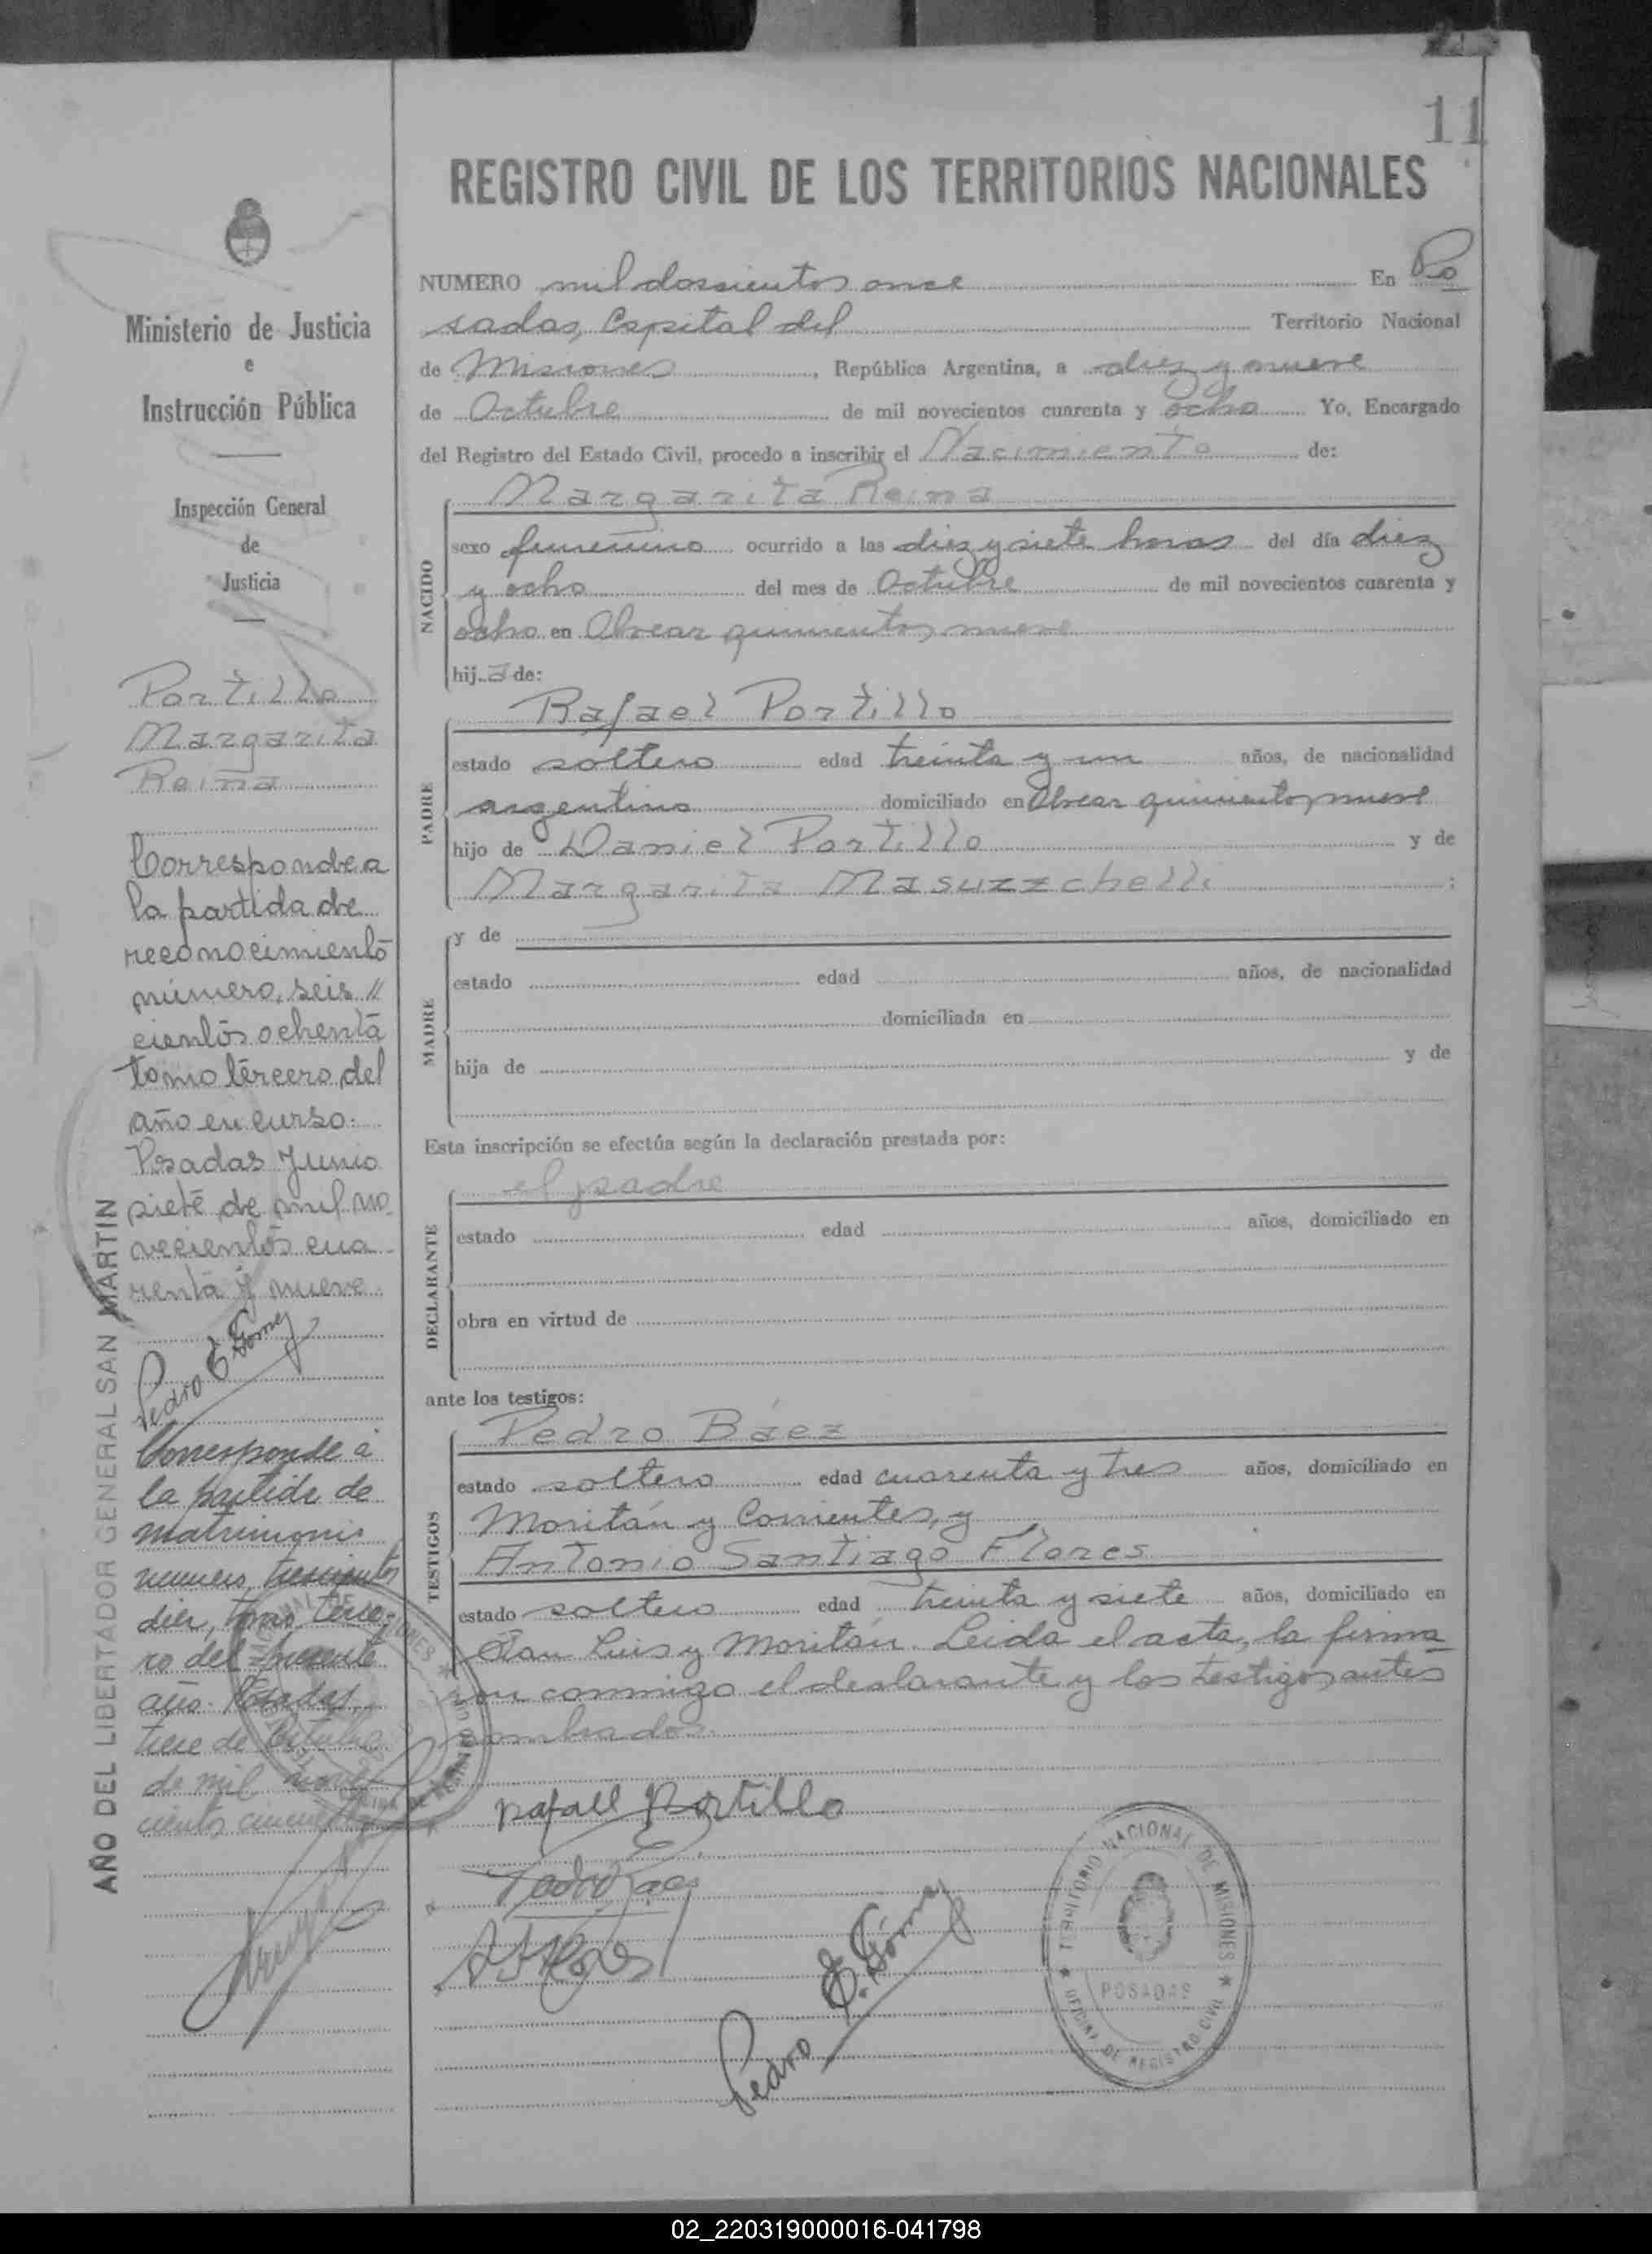 11
REGISTRO CIVIL DE LOS TERRITORIOS NACIONALES
Ministerio de Justicia
e
Instrucción Pública
Inspección General
de
Justicia
Portillo
Margarita
Reina
Corresponde a
la partida de
reconocimiento
número, seis //
cientos ochenta
tomo tercero del
año en curso.
Posadas Junio
siete de mil no
vecientos cua
renta y nueve.
Pedro E. Gómez
Corresponde a
la partida de
matrimonio
numero, trescientos
diez, tomo terce-
ro del presente
año. Posadas,
trece de Octubre
de mil nove
cientos cincuenta
AÑO DEL LIBERTADOR GENERAL SAN MARTIN
NUMERO mil doscientos once En Po
sadas, Capital del Territorio Nacional
de Misiones, República Argentina, a diez y nueve
de Octubre de mil novecientos cuarenta y ocho Yo, Encargado
del Registro del Estado Civil, procedo a inscribir el Nacimiento de:
Margarita Reina
NACIDO
sexo femenino ocurrido a las diez y siete horas del día diez
y ocho del mes de Octubre de mil novecientos cuarenta y
ocho en Alvear quinientos nueve
hija de:
Rafael Portillo
PADRE
estado soltero edad treinta y un años, de nacionalidad
argentino domiciliado en Alvear quinientos nueve
hijo de Daniel Portillo y de
Margarita Masuzzchelli ;
MADRE
y de
estado edad años, de nacionalidad
domiciliada en
hija de y de
Esta inscripción se efectúa según la declaración prestada por:
el padre
DECLARANTE
estado edad años, domiciliado en
obra en virtud de
ante los testigos:
Pedro Báez
TESTIGOS
estado soltero edad cuarenta y tres años, domiciliado en
Moritán y Corrientes, y
Antonio Santiago Flores
estado soltero edad treinta y siete años, domiciliado en
San Luis y Moritán. Leida el acta, la firma
ron conmigo el declarante y los testigos antes
nombrados.
Rafael Portillo
Pedro Baez
Pedro E. Gómez
TERRITORIO NACIONAL DE MISIONES
POSADAS
OFICINA DE REGISTRO CIVIL
02_220319000016-041798